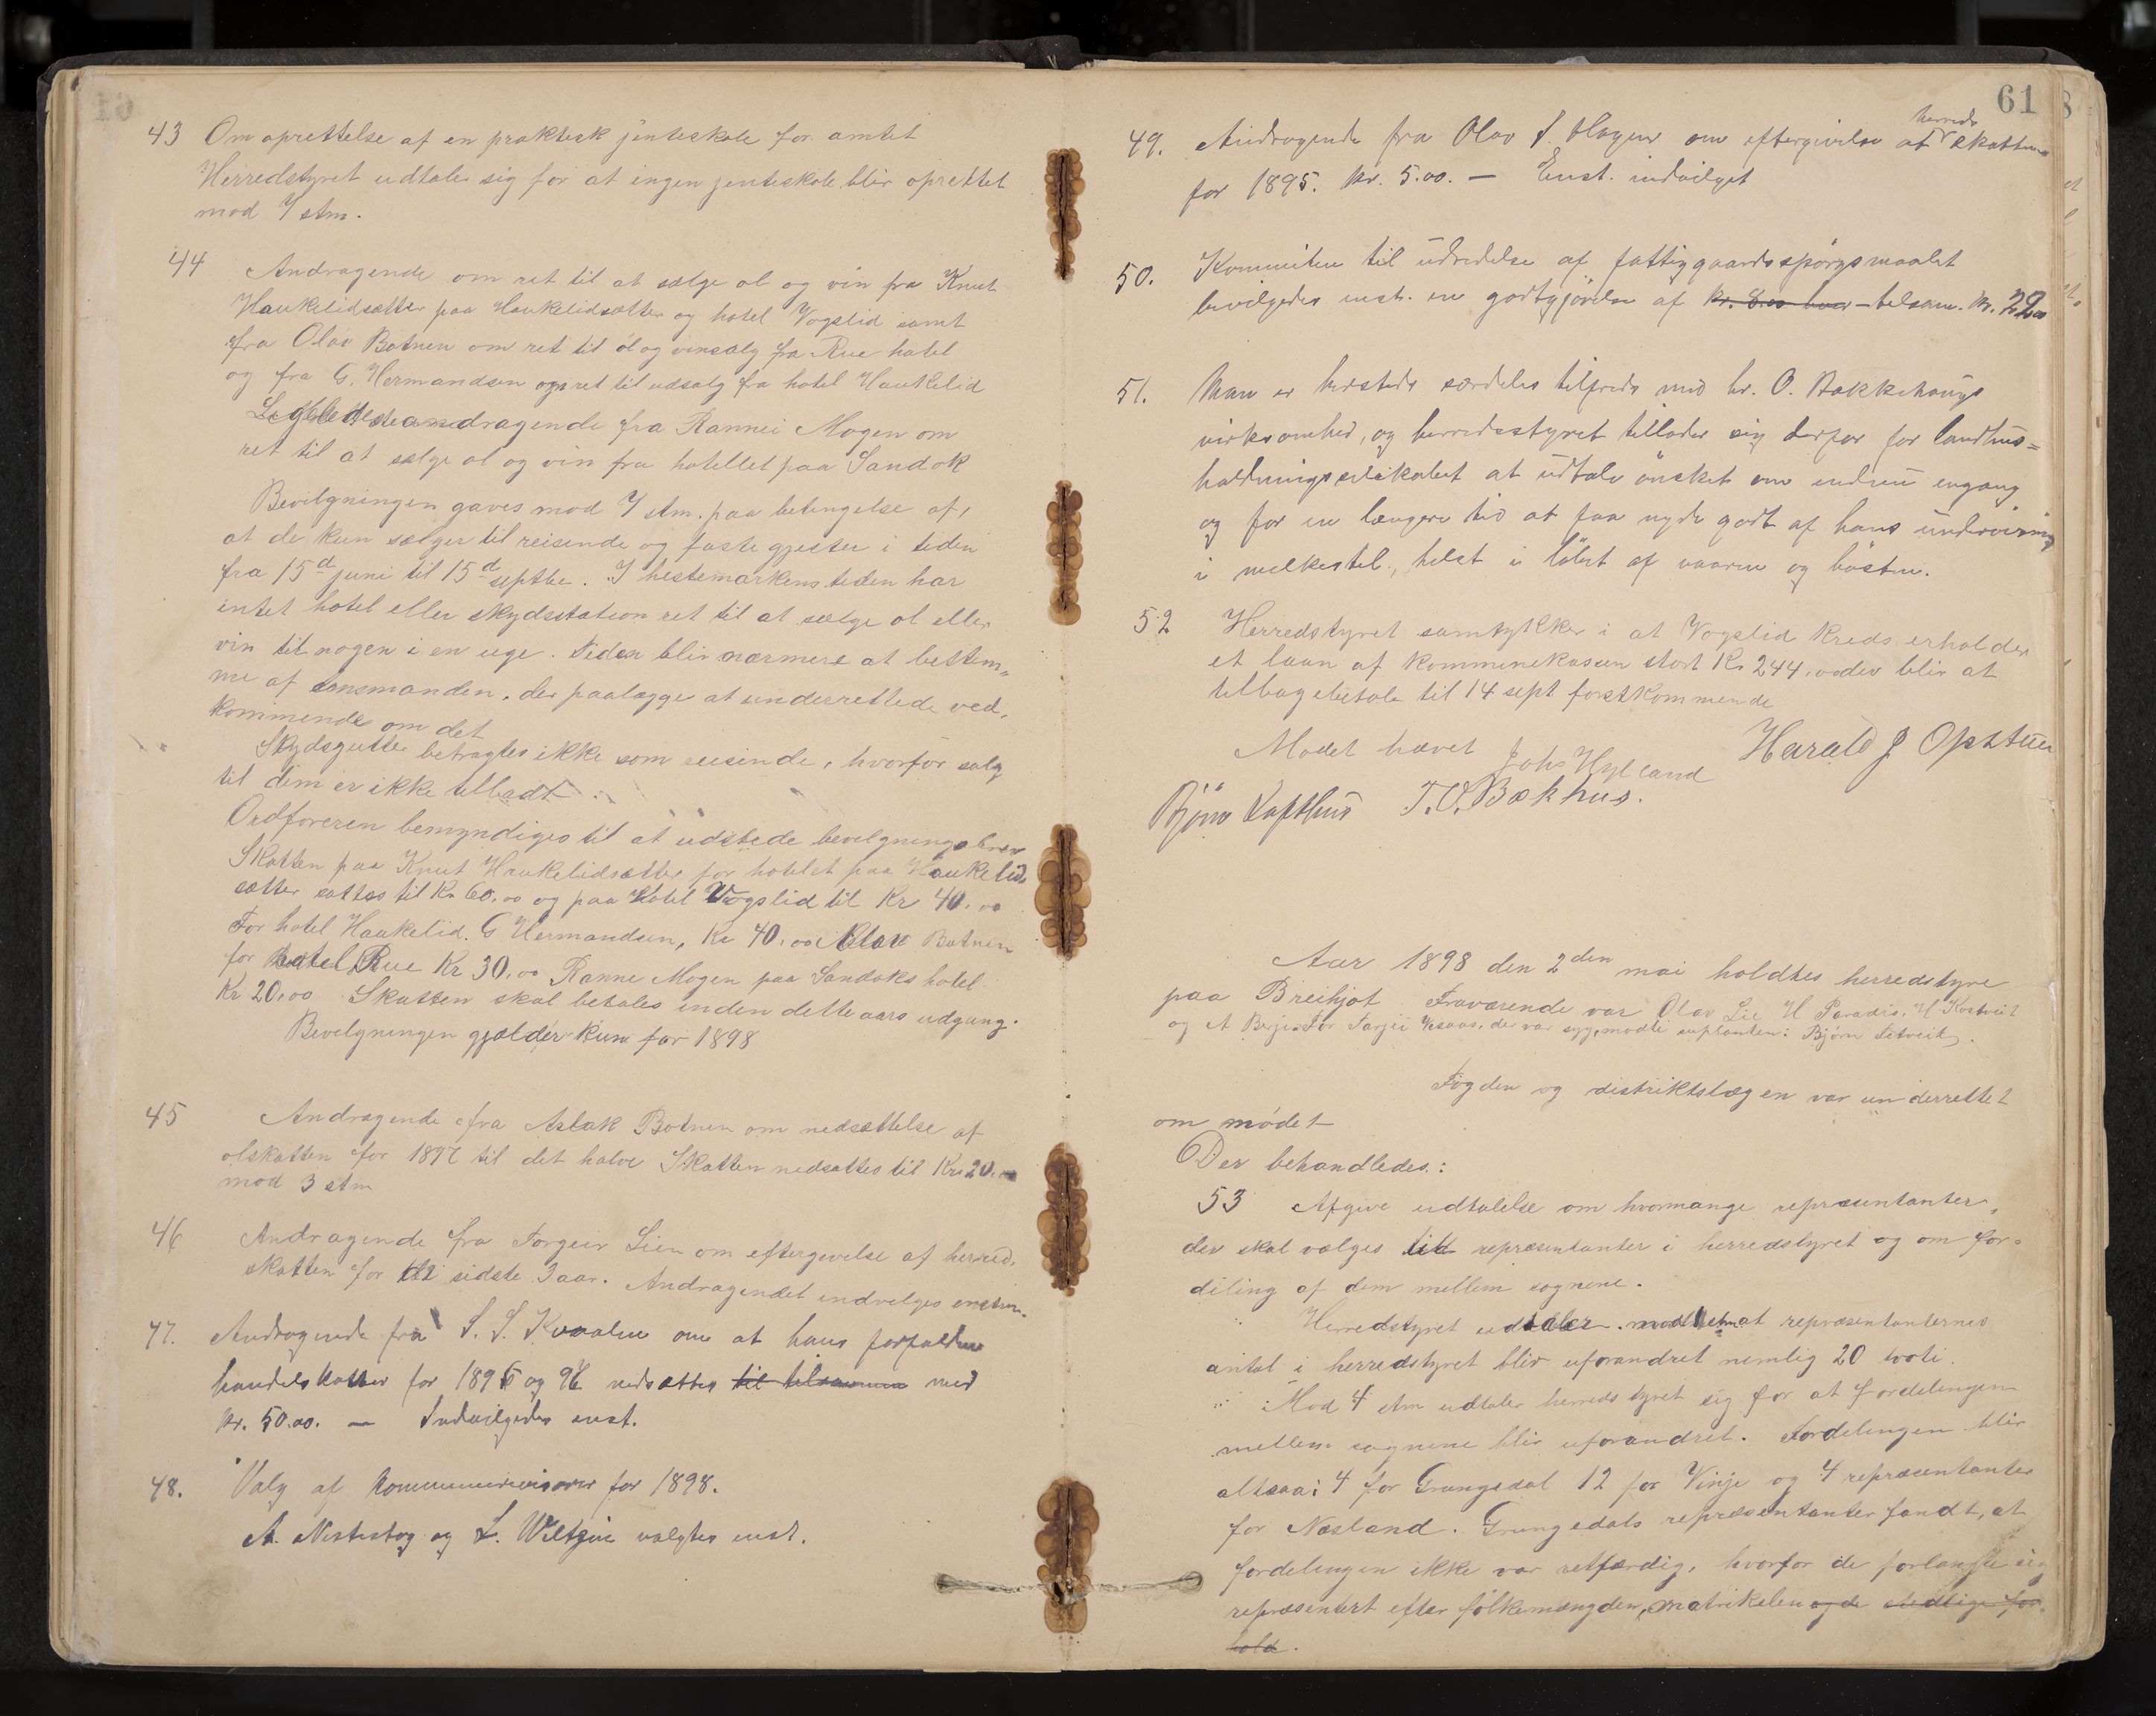 43 Om oprettelse af en praktisk jenteskole for amtet
Herredstyret udtaler sig for at ingen jenteskole blir oprettet
mod 7 stm.
44 Andragende om ret til at sælge øl og vin fra Knut
Haukelidsætter paa Haukelidsætter og hotel Vogslid samt
fra Olav Botnen om ret til øl og vinsalg fra Rue hotel
og fra G. Hermandsen om ret til udsalg fra hotel Haukelid
Ligeledes andragende fra Rannei Mogen om
ret til at sælge øl og vin fra hotellet paa Sandok
Bevilgningen gaves mod 7 stm. paa betingelse af,
at de kun sælger til reisende og faste gjester i tiden
fra 15d juni til 15d septbr. I hestemarkenstiden har
intet hotel eller skydsstation ret til at sælge øl eller
vin til nogen i en uge. Tiden blir nærmere at bestem„
me af lensmanden, der paalægges at underrettede ved„
kommende om det
Skydsgutter betragtes ikke som reisende, hvorfor salg
til dem er ikke tilladt
Ordføreren bemyndiges til at udstede bevilgningsbrev
Skatten paa Knut Haukelidsætter for hotelet paa Haukelid
sætter sattes til Kr 60,00 og paa Hotel Vogslid til Kr 40.00
For hotel Haukelid. G Hermandsen, Kr 40,00 Olav Botnen
for hotel Rue Kr 30,00 Ranne Mogen paa Sandoks hotel
Kr 20,00 Skatten skal betales inden dette aars udgang.
Bevilgningen gjælder kun for 1898
45 Andragende fra Aslak Botnen om nedsættelse af
ølskatten for 1897 til det halve Skatten nedsattes til Kr 20.00
mod 3 stm
46 Andragende fra Torgeir Lien om eftergivelse af herred„
skatten for de sidste 3 aar. Andragendet indvilges enstm.
47. Andragende fra S. S. Kvaalen om at hans forfaldne
handelskatter for 1896 og 97 nedsættes til tilsammen med
kr. 50.00. — Indvilgedes enst.
48. Valg af kommunerevisorer for 1898.
A. Nestestog og L. Wiltgju valgtes enst.
61
49. Andragende fra Olav S. Hagen om eftergivelse af herreds skatten
for 1895. kr. 5.00. — Enst. indvilget
50. Kommiteen til udredelse af fattiggaardsspørgsmaalet
bevilgedes enst. en godtgjørelse af kr. 8.00 hver – tilsam. kr. 22.00
51. Man er herstede særdeles tilfreds med hr. O. Bakkehaugs
virksomhed, og herredsstyret tillader sig derfor for landhus=
holdningsselskabet at udtale ønsket om endnu engang
og for en længere tid at faa nyde godt af hans undervisning
i melkestel, helst i løbet af vaaren og høsten.
52 Herredstyret samtykker i at Vogslid Kreds erholder
et laan af kommunekassen stort Kr 244,00 der blir at
tilbagebetale til 14 sept førstkommende
Mødet hævet Johs Hylland Harald J Opstuen
Bjørn Lofthus T. O. Bækhus.
Aar 1898 den 2den mai holdtes herredstyre
paa Breihjøt Fraværende var Olav Lie H Paradis. H Kostveit
og A Berge. For Tarjei Vesaas, der var syg, mødte suplanten: Bjørn Letveit.
Fogden og distriktslægen var underrettet
om mødet
Der behandledes:
53 Afgive udtalelse om hvormange repræsentanter,
der skal vælges til repræsentanter i herredstyret og om for„
deling af dem mellem sognene.
Herredstyret udtaler mod 1 stm at repræsentanternes
antal i herredstyret blir uforandret nemlig 20
Mod 4 stm udtaler herredsstyret sig for at fordelingen
mellem sognene blir uforandret. Fordelingen blir
altsaa: 4 for Grungedal 12 for Vinje og 4 repræsentanter
for Nesland. Grungedals repræsentanter fandt, at
fordelingen ikke var retfærdig, hvorfor de forlangte sig
repræsentert efter folkemængden, matrikelen og de stedlige for„
hold.